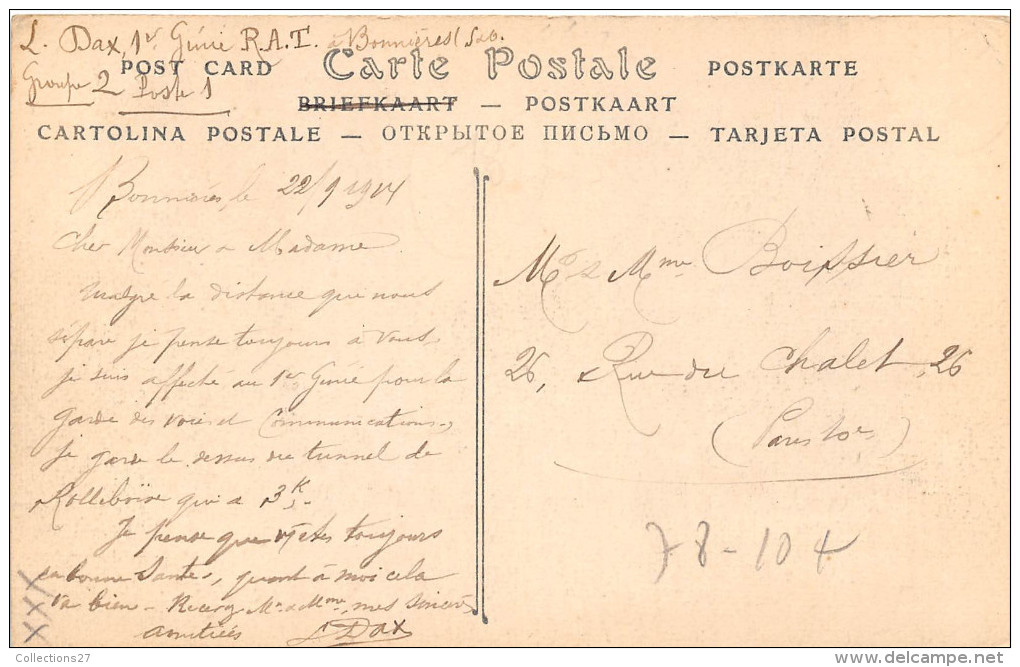 L. Dax, 1er Génie R.A.T. à Bonnières S&O.
Groupe 2 Poste 1
POST CARD Carte Postale POSTKARTE
BRIEFKAART — POSTKAART
CARTOLINA POSTALE — ОТКРЫТОЕ ПИСЬМО — TARJETA POSTAL
Bonnières, le 22/9 1914
Cher Monsieur & Madame
Malgré la distance que nous
sépare je pense toujours à vous,
je suis affecté au 1er Génie pour la
garde des voies et Communications,
je garde le dessus du tunnel de
Rolleboise qui a 3K
Je pense que vs êtes toujours
en bonne Santé, quant à moi cela
va bien - Recevez Mr & Mme, mes sincères
amitiés L Dax
Mr & Mme Boissier
26, Rue du Chalet, 26
(Paris 10e)
78-104
XXX
Collections27
http://www.delcampe.net